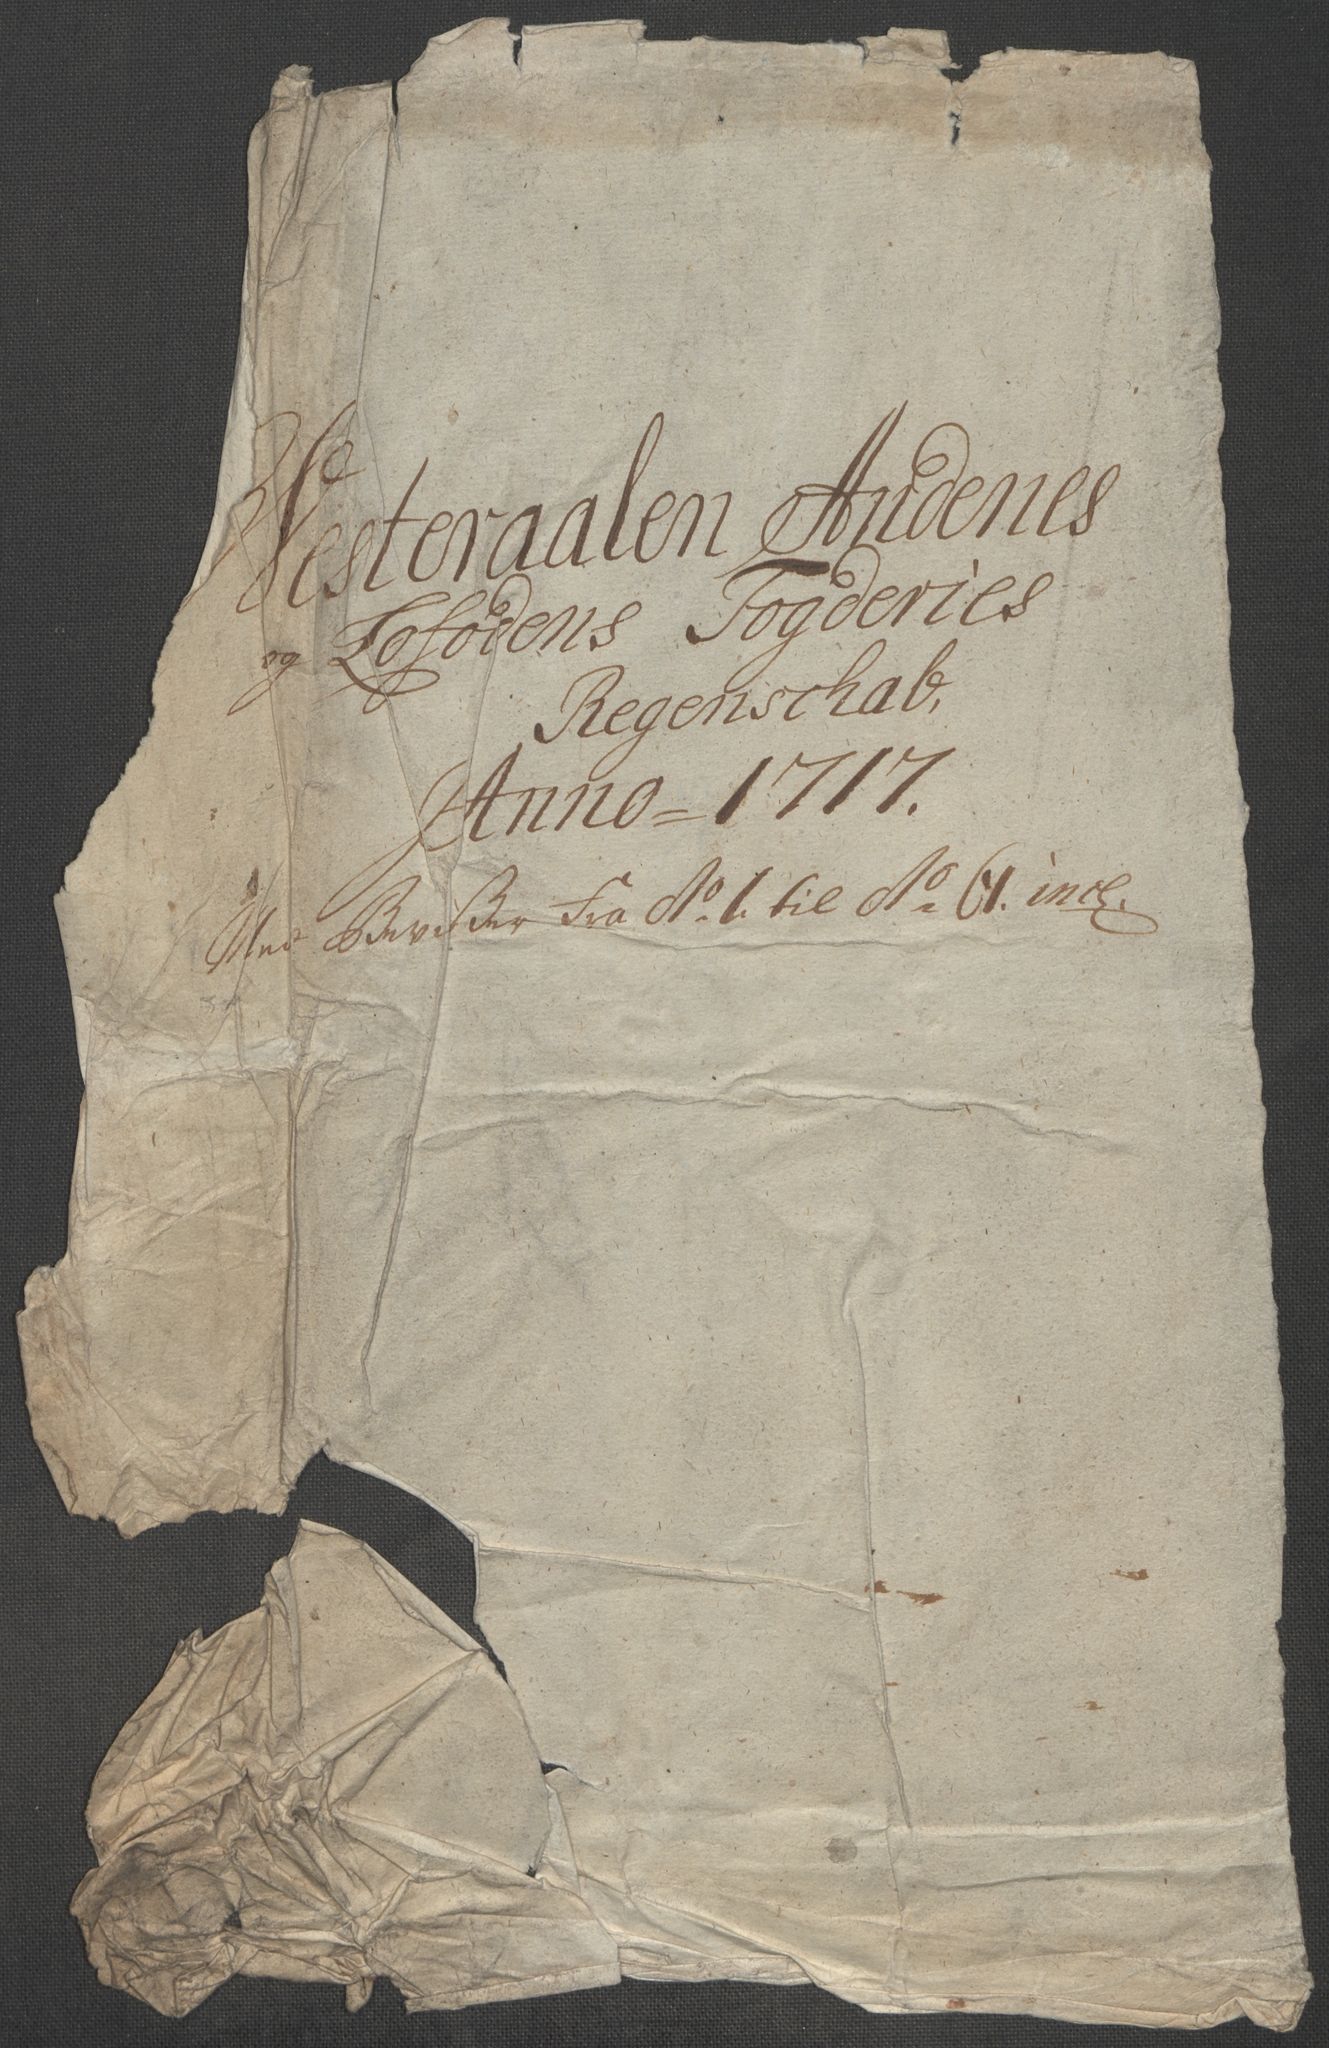 Westeraalen Andenes
og Lofodens Fogderies
Regenschab,
Anno = 1717.
Med Beviser Fra No. 1. til No. 61. incl.